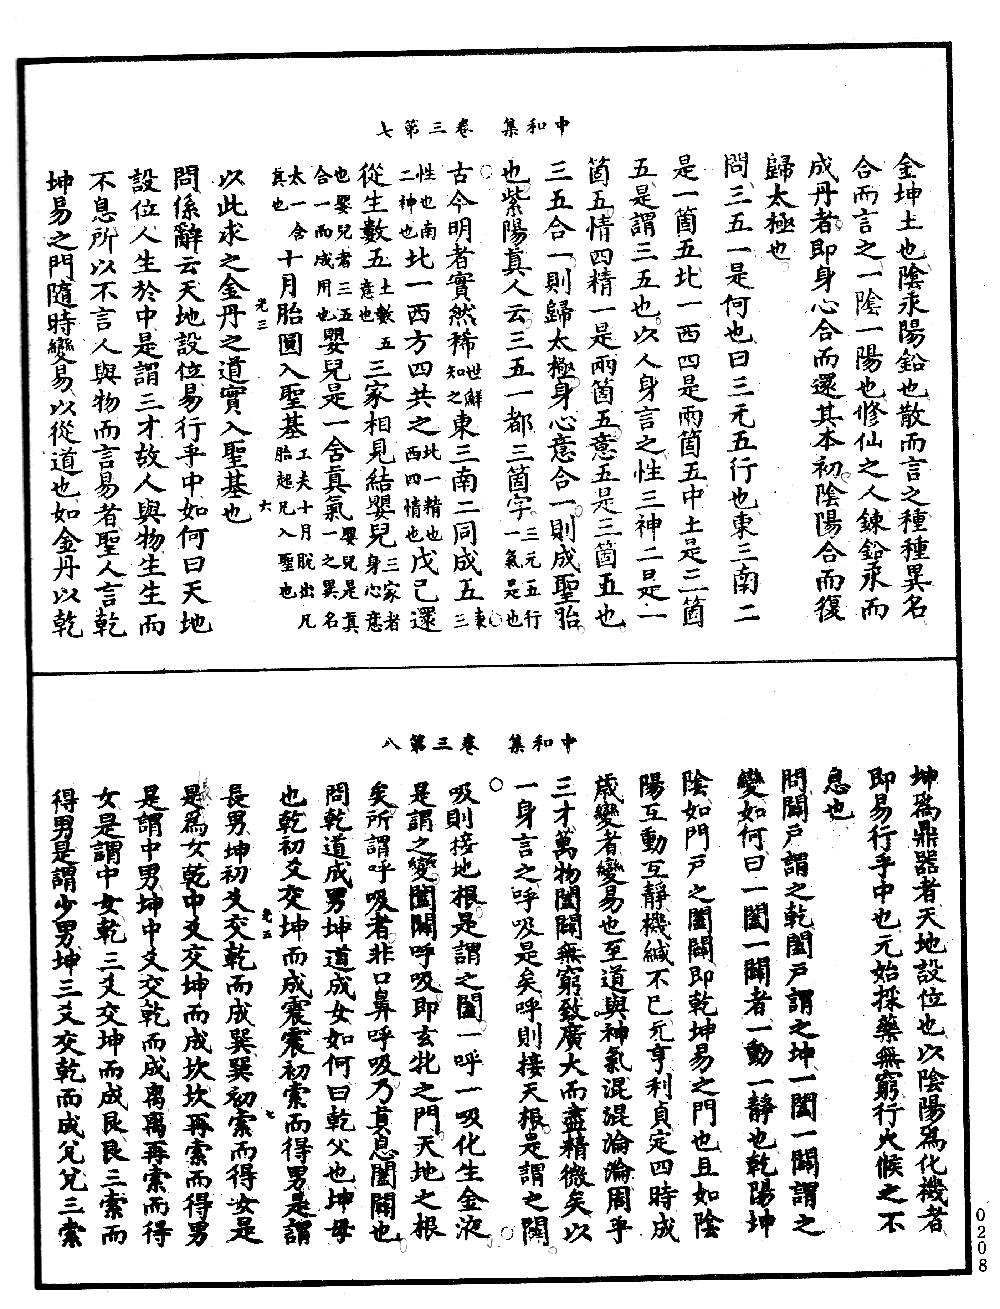 中和集　卷三第七
金坤土也陰汞陽鉛也散而言之種種異名
合而言之一陰一陽也修仙之人鍊鉛汞而
成丹者即身心合而還其本初陰陽合而復
歸太極也
問三五一是何也曰三元五行也東三南二
是一箇五北一西四是兩箇五中土是三箇
五是謂三五也以人身言之性三神二是一
箇五情四精一是兩箇五意五是三箇五也
三五合一則歸太極身心意合一則成聖胎
也紫陽真人云三五一都三箇字三元五行一氣是也
古今明者實然稀世鮮知之東三南二同成五東三
性也南二神也北一西方四共之北一精也西四情也戊己還
從生數五土數五意也三家相見結嬰兒三家者身心意
也嬰兒者三五合一而成用也嬰兒是一含真氣嬰兒是真一之異名
太一含真也十月胎圓入聖基工夫十月脫出凡胎超凡入聖也
光三　六
以此求之金丹之道實入聖基也
問係辭云天地設位易行乎中如何曰天地
設位人生於中是謂三才故人與物生生而
不息所以不言人與物而言易者聖人言乾
坤易之門隨時變易以從道也如金丹以乾
中和集　卷三第八
坤爲鼎器者天地設位也以陰陽爲化機者
即易行乎中也元始採藥無窮行火候之不
息也
問闢戶謂之乾闔戶謂之坤一闔一闢謂之
變如何曰一闔一闢者一動一靜也乾陽坤
陰如門戶之闔闢即乾坤易之門也且如陰
陽互動互靜機緘不已元亨利貞定四時成
歲變者變易也至道與神氣混混淪淪周乎
三才萬物闔闢無窮致廣大而盡精微矣以
一身言之呼吸是矣呼則接天根是謂之闢
吸則接地根是謂之闔一呼一吸化生金液
是謂之變闔闢呼吸即玄牝之門天地之根
矣所謂呼吸者非口鼻呼吸乃真息闔闢也
問乾道成男坤道成女如何曰乾父也坤母
也乾初爻交坤而成震震初索而得男是謂
長男坤初爻交乾而成巽巽初索而得女是
光五　七
是爲長女乾中爻交坤而成坎坎再索而得男
是謂中男坤中爻交乾而成離離再索而得
女是謂中女乾三爻交坤而成艮艮三索而
得男是謂少男坤三爻交乾而成兌兌三索
0208